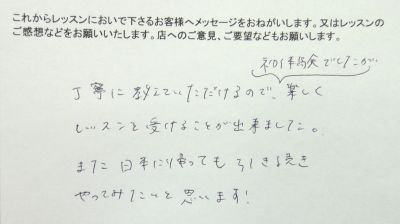 これからレッスンにおいで下さるお客様へメッセージをおねがいします。又はレッスンの
ご感想などをお願いいたします。店へのご意見、ご要望などもお願いします。
初体験でしたが
丁寧に教えていただけるので、楽しく
レッスンを受けることが出来ました。
また日本に帰っても引き続き
やってみたいと思います!